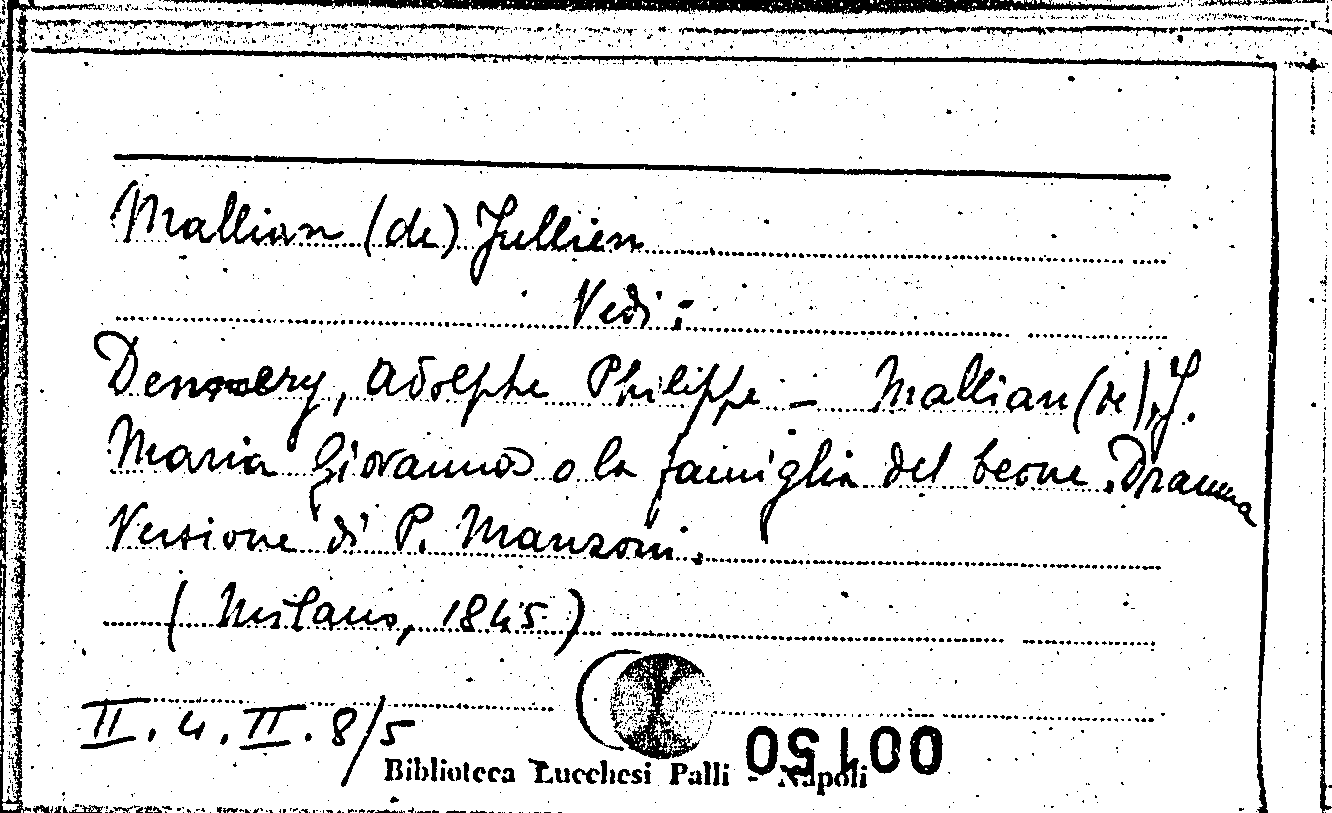 Mallian (de) Jullien
Vedi:
Dennery, Adolphe Philippe - Mallian (de), J.
Maria Giovanna o la famiglia del beone. Dramma
Versione di P. Manzoni.
(Milano, 1845)
II. 4. II. 8/5
Biblioteca Lucchesi Palli - Napoli